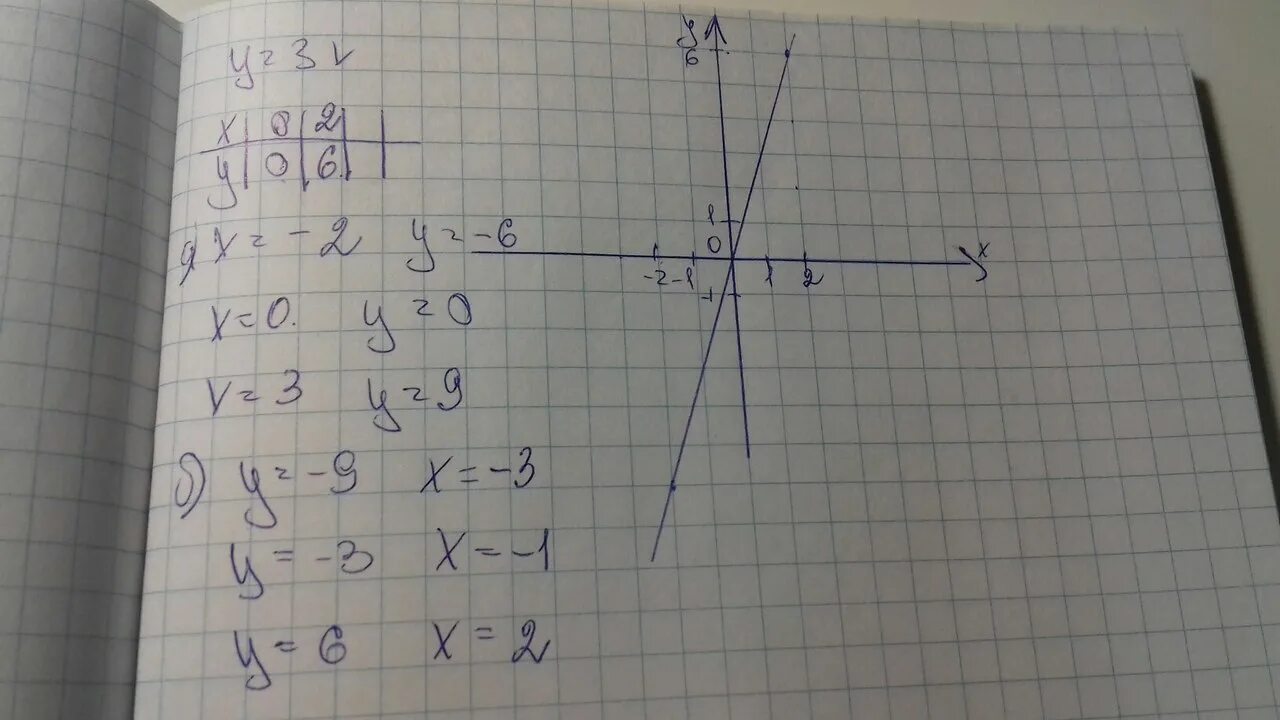 y = 3x
x | 0 | 2
y | 0 | 6
а) x = -2 y = -6
x = 0. y = 0
x = 3 y = 9
б) y = -9 x = -3
y = -3 x = -1
y = 6 x = 2
y
6
1
0
x
-2 -1 1 2
-1